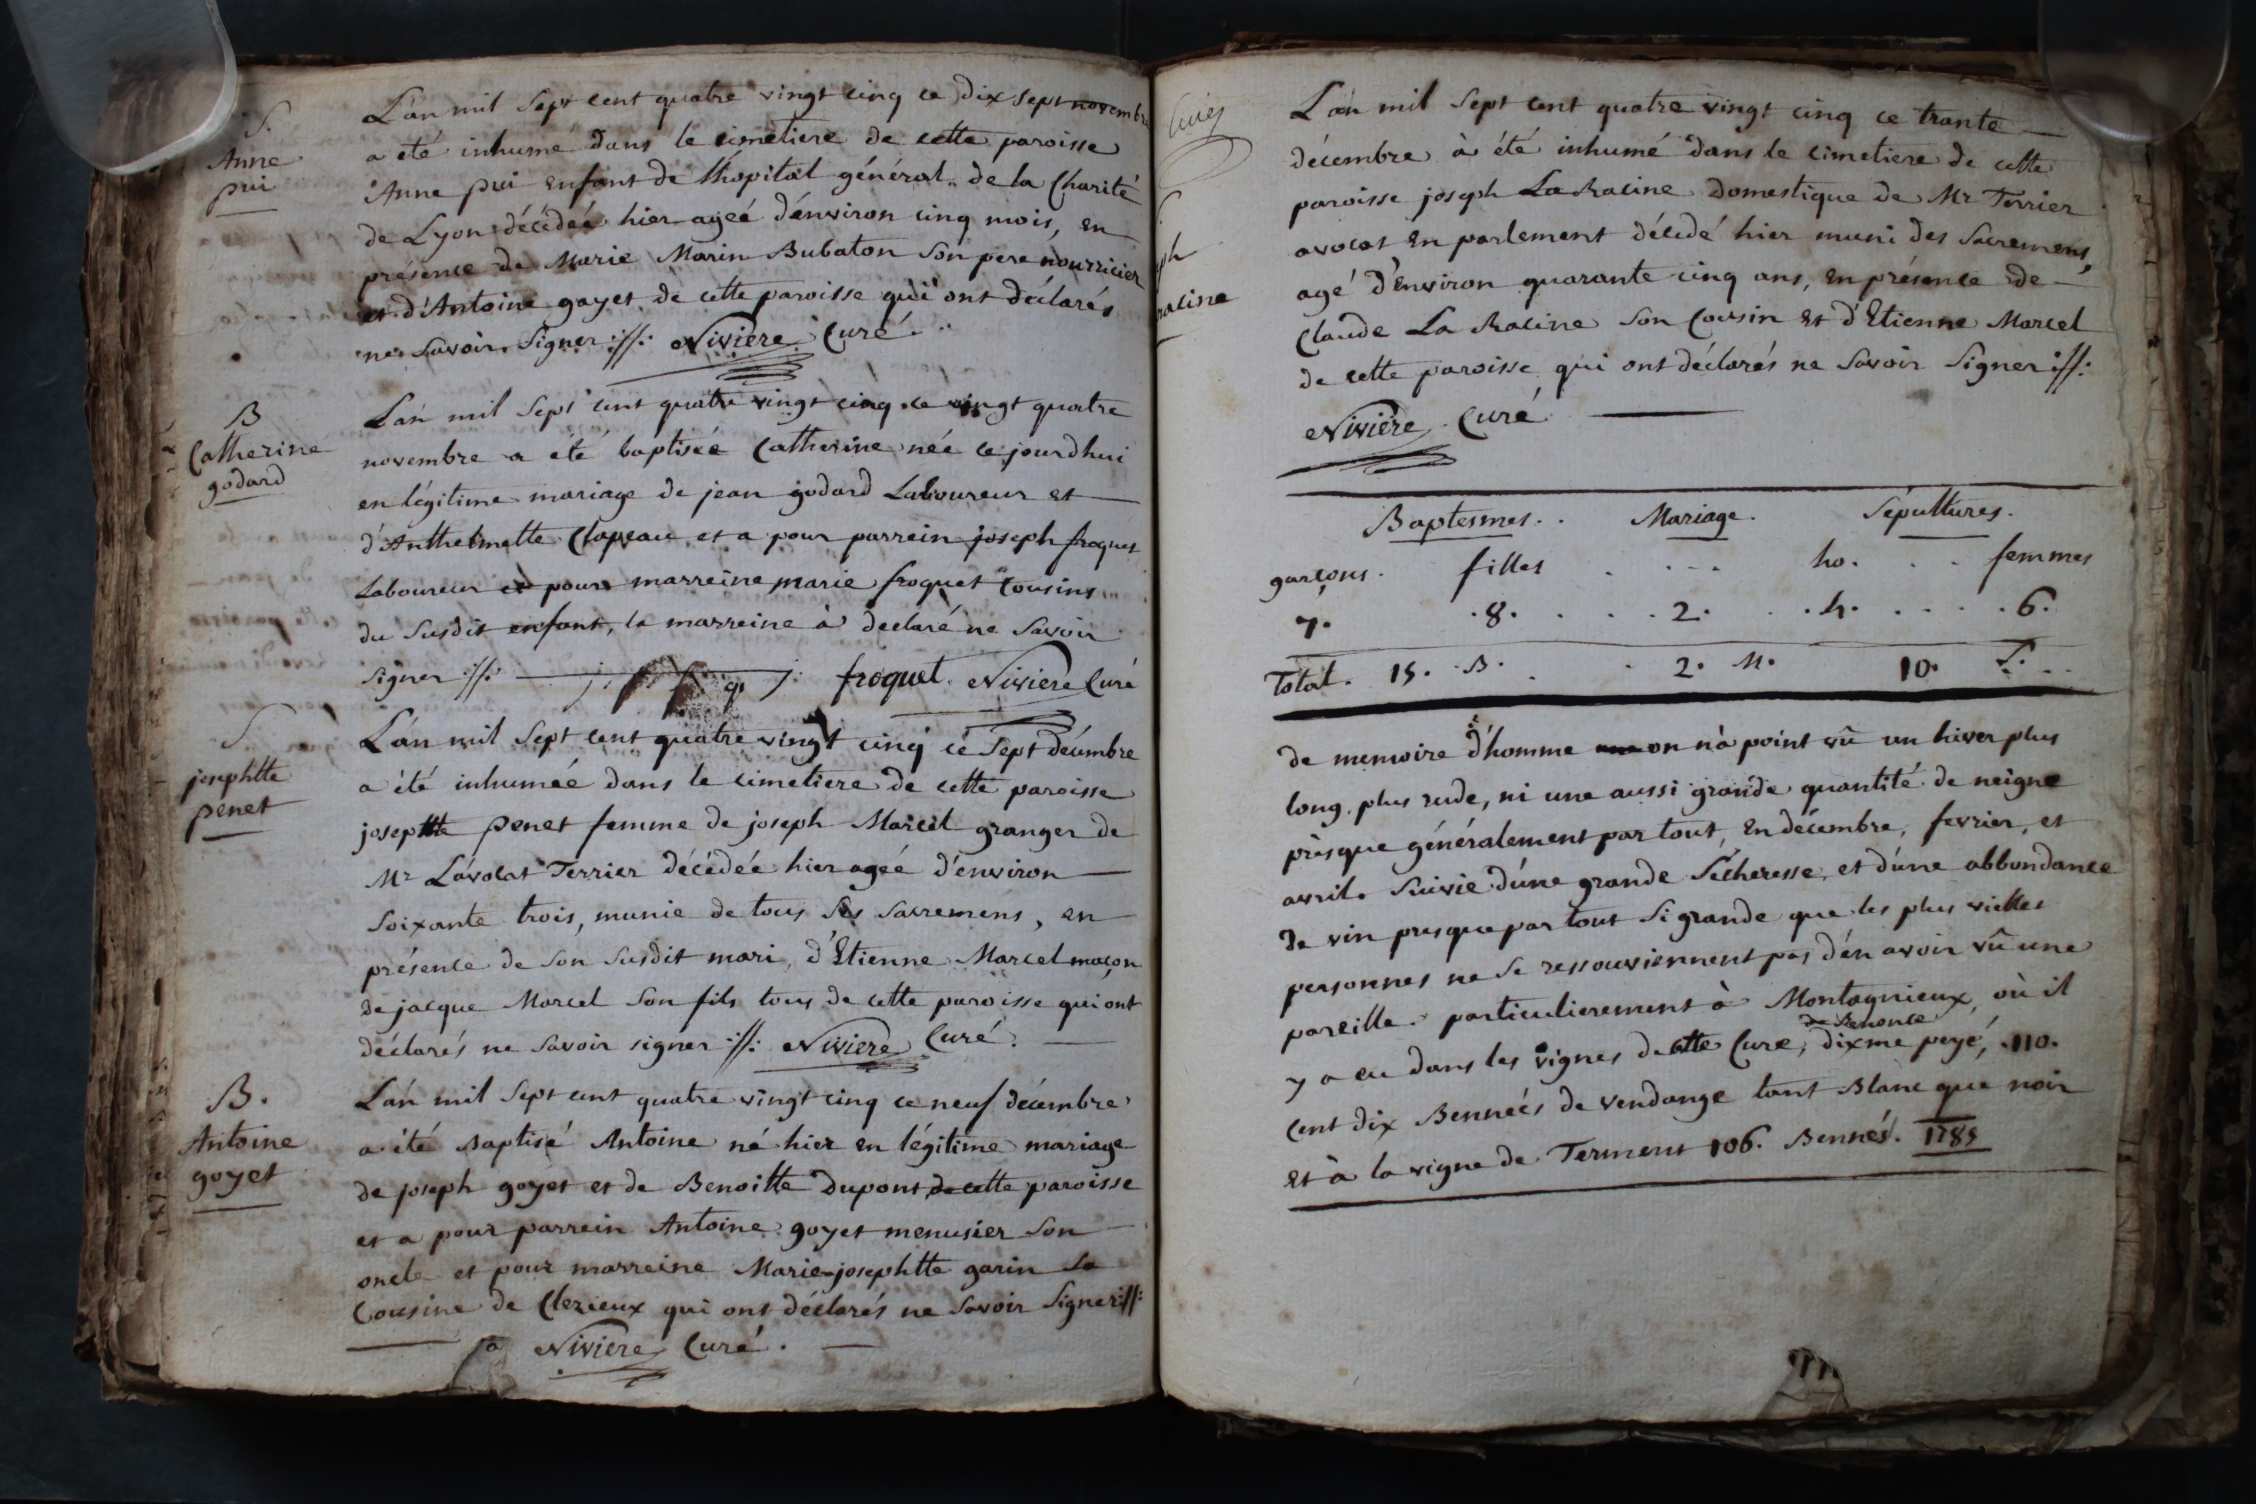 S.
Anne
pui
L'an mil Sept cent quatre vingt cinq ce dix sept novembre
a été inhumé dans le cimetiere de cette paroisse
Anne pui enfant de l'hopital général de la Charité
de Lyon décédée hier ageé d'environ cinq mois, en
présence de Marie Marin Bubaton Son pere nourricier
et d'Antoine goyet de cette paroisse qui ont déclarés
ne Savoir Signer ://: Niviere Curé.
B
Catherine
godard
L'an mil Sept cent quatre vingt cinq ce vingt quatre
novembre a été baptisée Catherine née ce jourdhui
en légitime mariage de jean godard Laboureur et
d'Anthelmette Clapeau et a pour parrein joseph froquet
Laboureur et pour marreine marie froquet Cousins
du Susdit enfant, la marreine à déclaré ne Savoir
Signer ://: froquet. Niviere Curé
S
josephtte
penet
L'an mil Sept cent quatre vingt cinq ce Sept décembre
a été inhumée dans le cimetiere de cette paroisse
josephtte penet femme de joseph Marcel granger de
Mr L'avocat Terrier décédée hier ageé d'environ
Soixante trois, munie de tous Ses Sacremens, en
présence de Son Susdit mari, d'Etienne Marcel maçon
de jacque Marcel Son fils tous de cette paroisse qui ont
déclarés ne Savoir signer ://: Niviere Curé.
B.
Antoine
goyet
L'an mil Sept cent quatre vingt cinq ce neuf décembre
a été Baptisé Antoine né hier en légitime mariage
de joseph goyet et de Benoitte Dupont de cette paroisse
et a pour parrein Antoine goyet menusier Son
oncle et pour marreine Marie-josephtte garin Sa
Cousine de Clezieux qui ont déclarés ne Savoir Signer ://:
Niviere Curé.
ph
racine
L'an mil Sept cent quatre vingt cinq ce trante
décembre à été inhumé dans le cimetiere de cette
paroisse joseph La Racine Domestique de Mr Terrier
avocat en parlement décédé hier muni des Sacremens,
agé d'Environ quarante cinq ans, en présence de
Claude La Racine Son Cousin et d'Etienne Marcel
de cette paroisse qui ont déclarés ne Savoir Signer ://:
Niviere Curé
Baptesmes. Mariage. Sépultures.
garçons. filles ho. femmes
7. 8. 2. 4. 6.
Total. 15. B. 2. M. 10. S.
de memoire d'homme on n'a point vû un hiver plus
long, plus rude, ni une aussi grande quantité de neigne
présque généralement par tout, En décembre, fevrier, et
avril. Suivie d'une grande Sécheresse, et d'une abbondance
de vin presque par tout Si grande que les plus vielles
personnes ne Se ressouviennent pas d'en avoir vû une
pareille. particulierement à Montagnieux, où il
y a eu dans les vignes de cette Cure, dixme payé, 110.
cent dix Bennées de vendange tant Blanc que noir
et à la vigne de Terment 106. Bennés. 1785